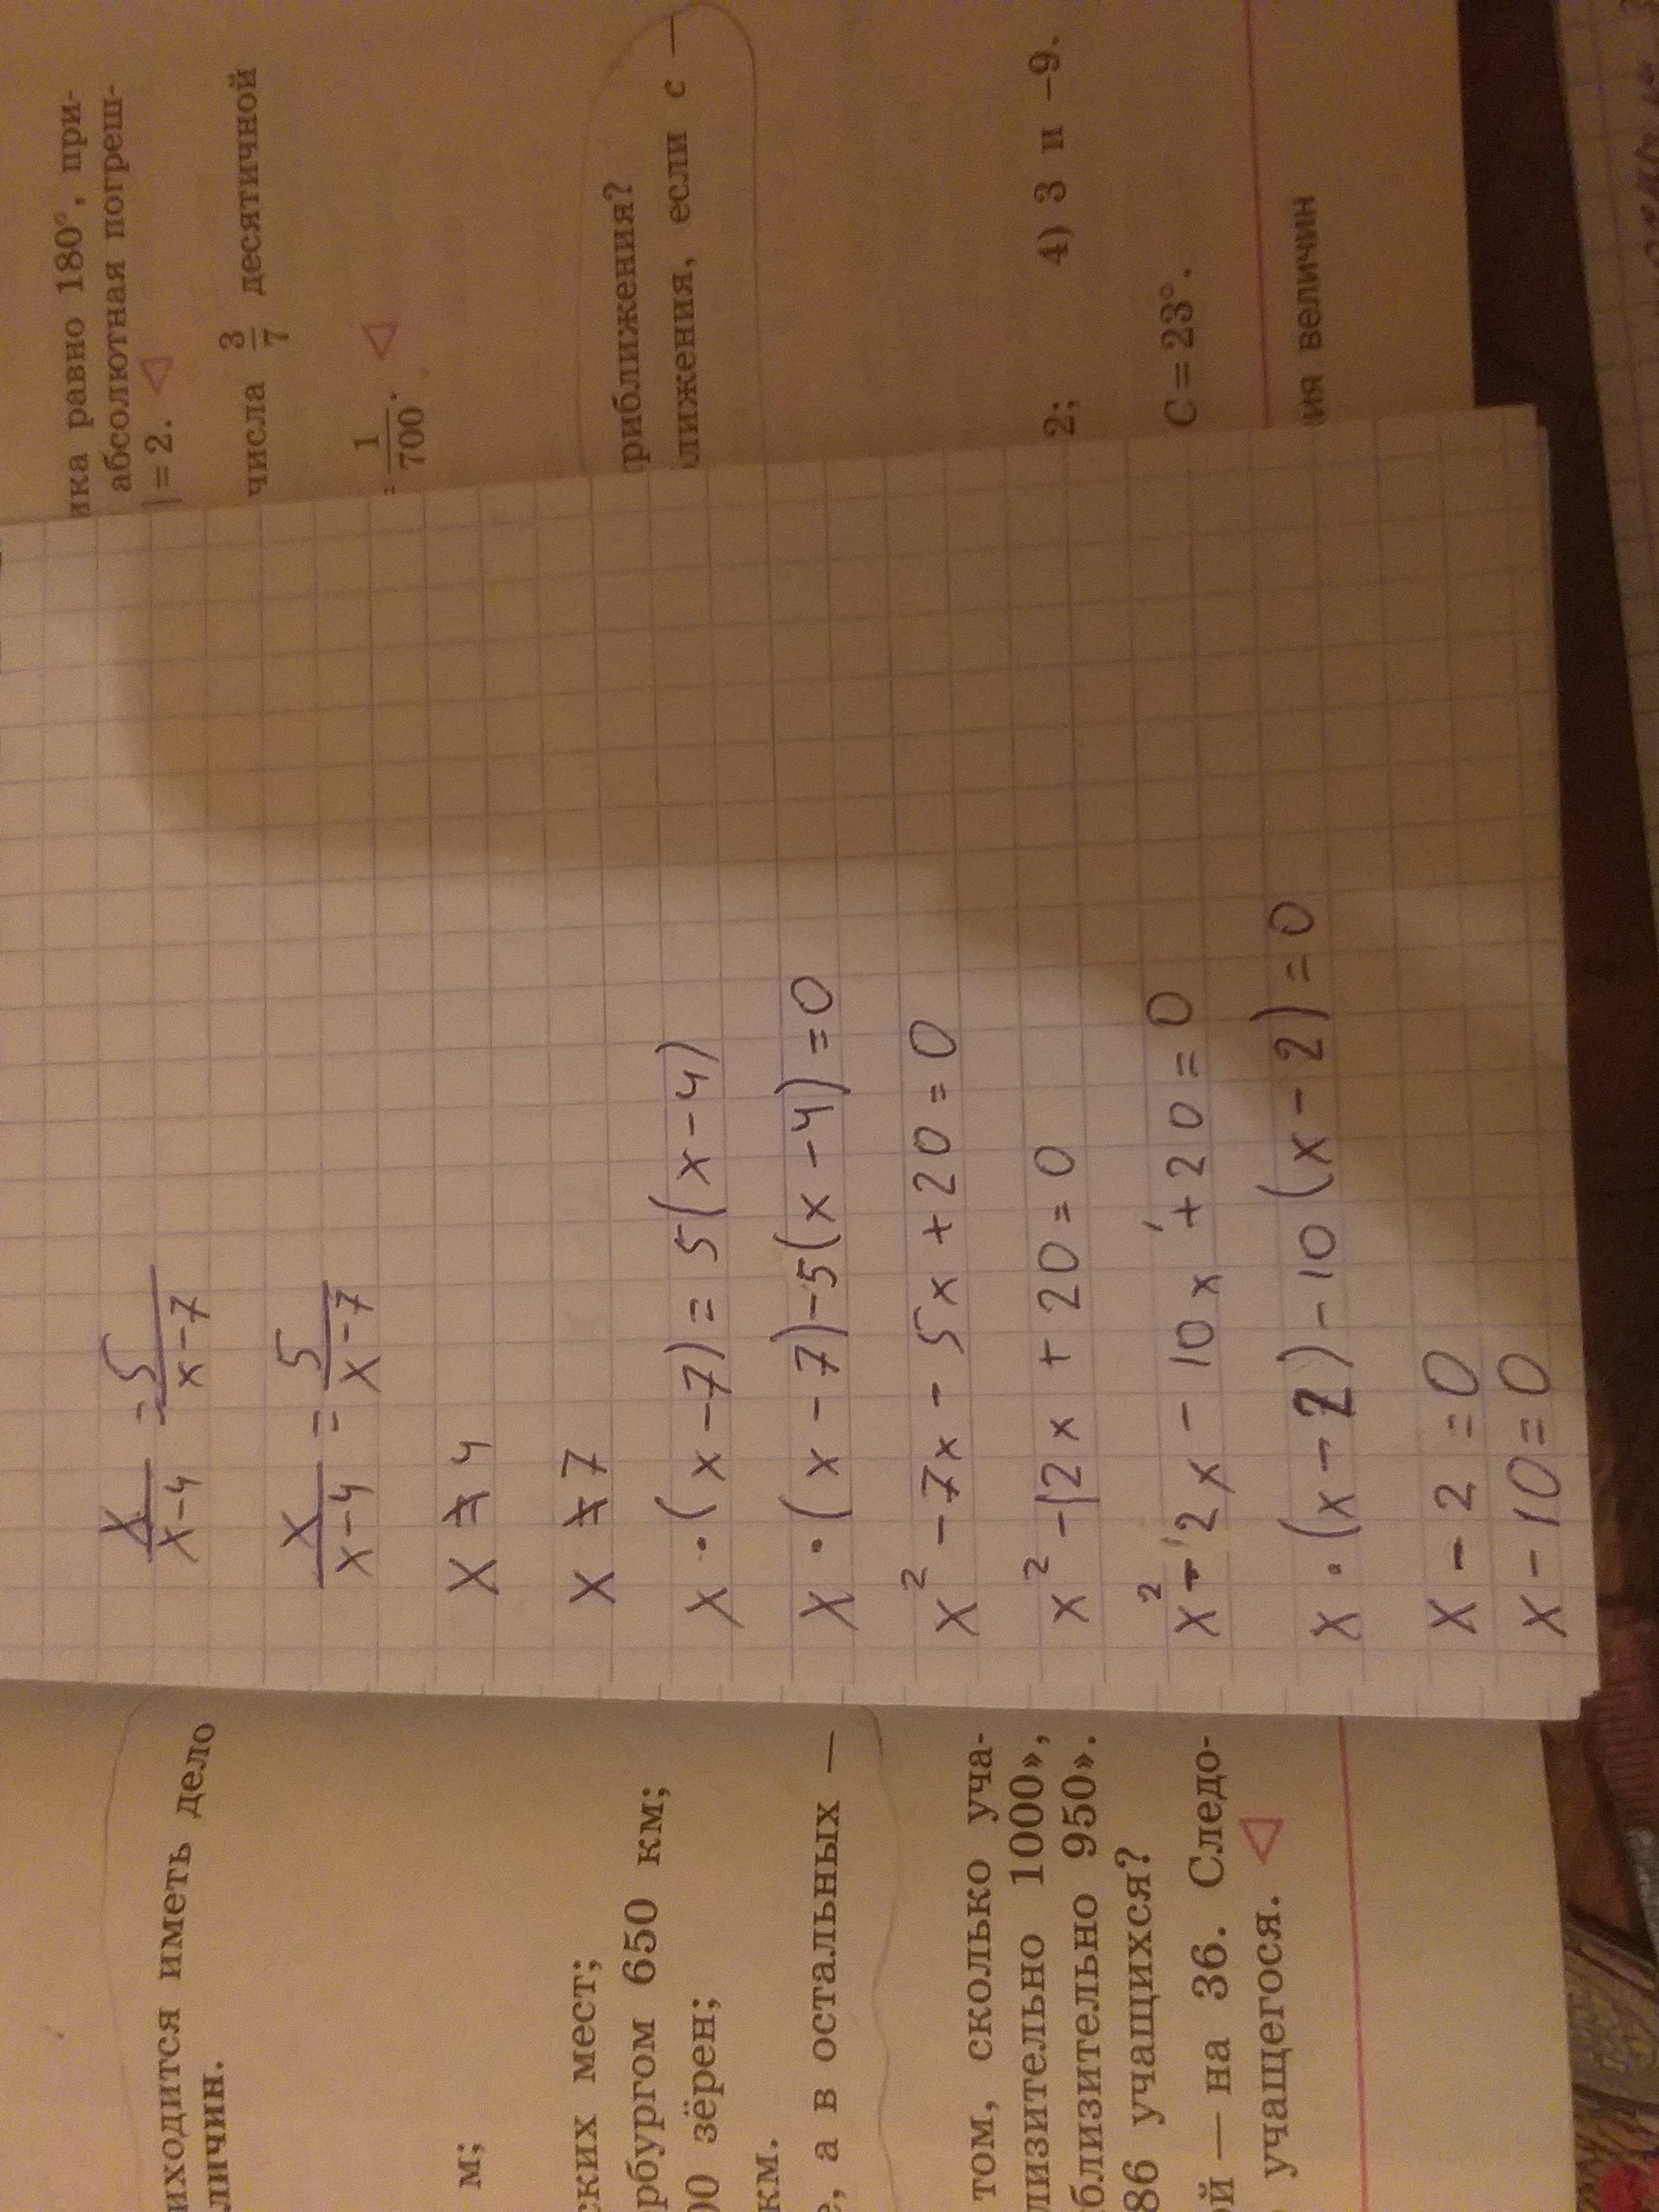 x/x-4 = 5/x-7
x/x-4 = 5/x-7
x ≠ 4
x ≠ 7
x · (x - 7) = 5(x - 4)
x · (x - 7) - 5(x - 4) = 0
x² - 7x - 5x + 20 = 0
x² - 12x + 20 = 0
x² - 2x - 10x + 20 = 0
x · (x - 2) - 10(x - 2) = 0
x - 2 = 0
x - 10 = 0
ика равно 180°, при-
абсолютная погреш-
| = 2. ◁
числа 3/7 десятичной
= 1/700. ◁
риближения?
лижения, если с —
2; 4) 3 и -9.
C = 23°.
ия величин
иходится иметь дело
личин.
м;
ских мест;
рбургом 650 км;
00 зёрен;
км.
е, а в остальных —
том, сколько уча-
лизительно 1000»,
близительно 950».
86 учащихся?
ой — на 36. Следо-
учащегося. ◁